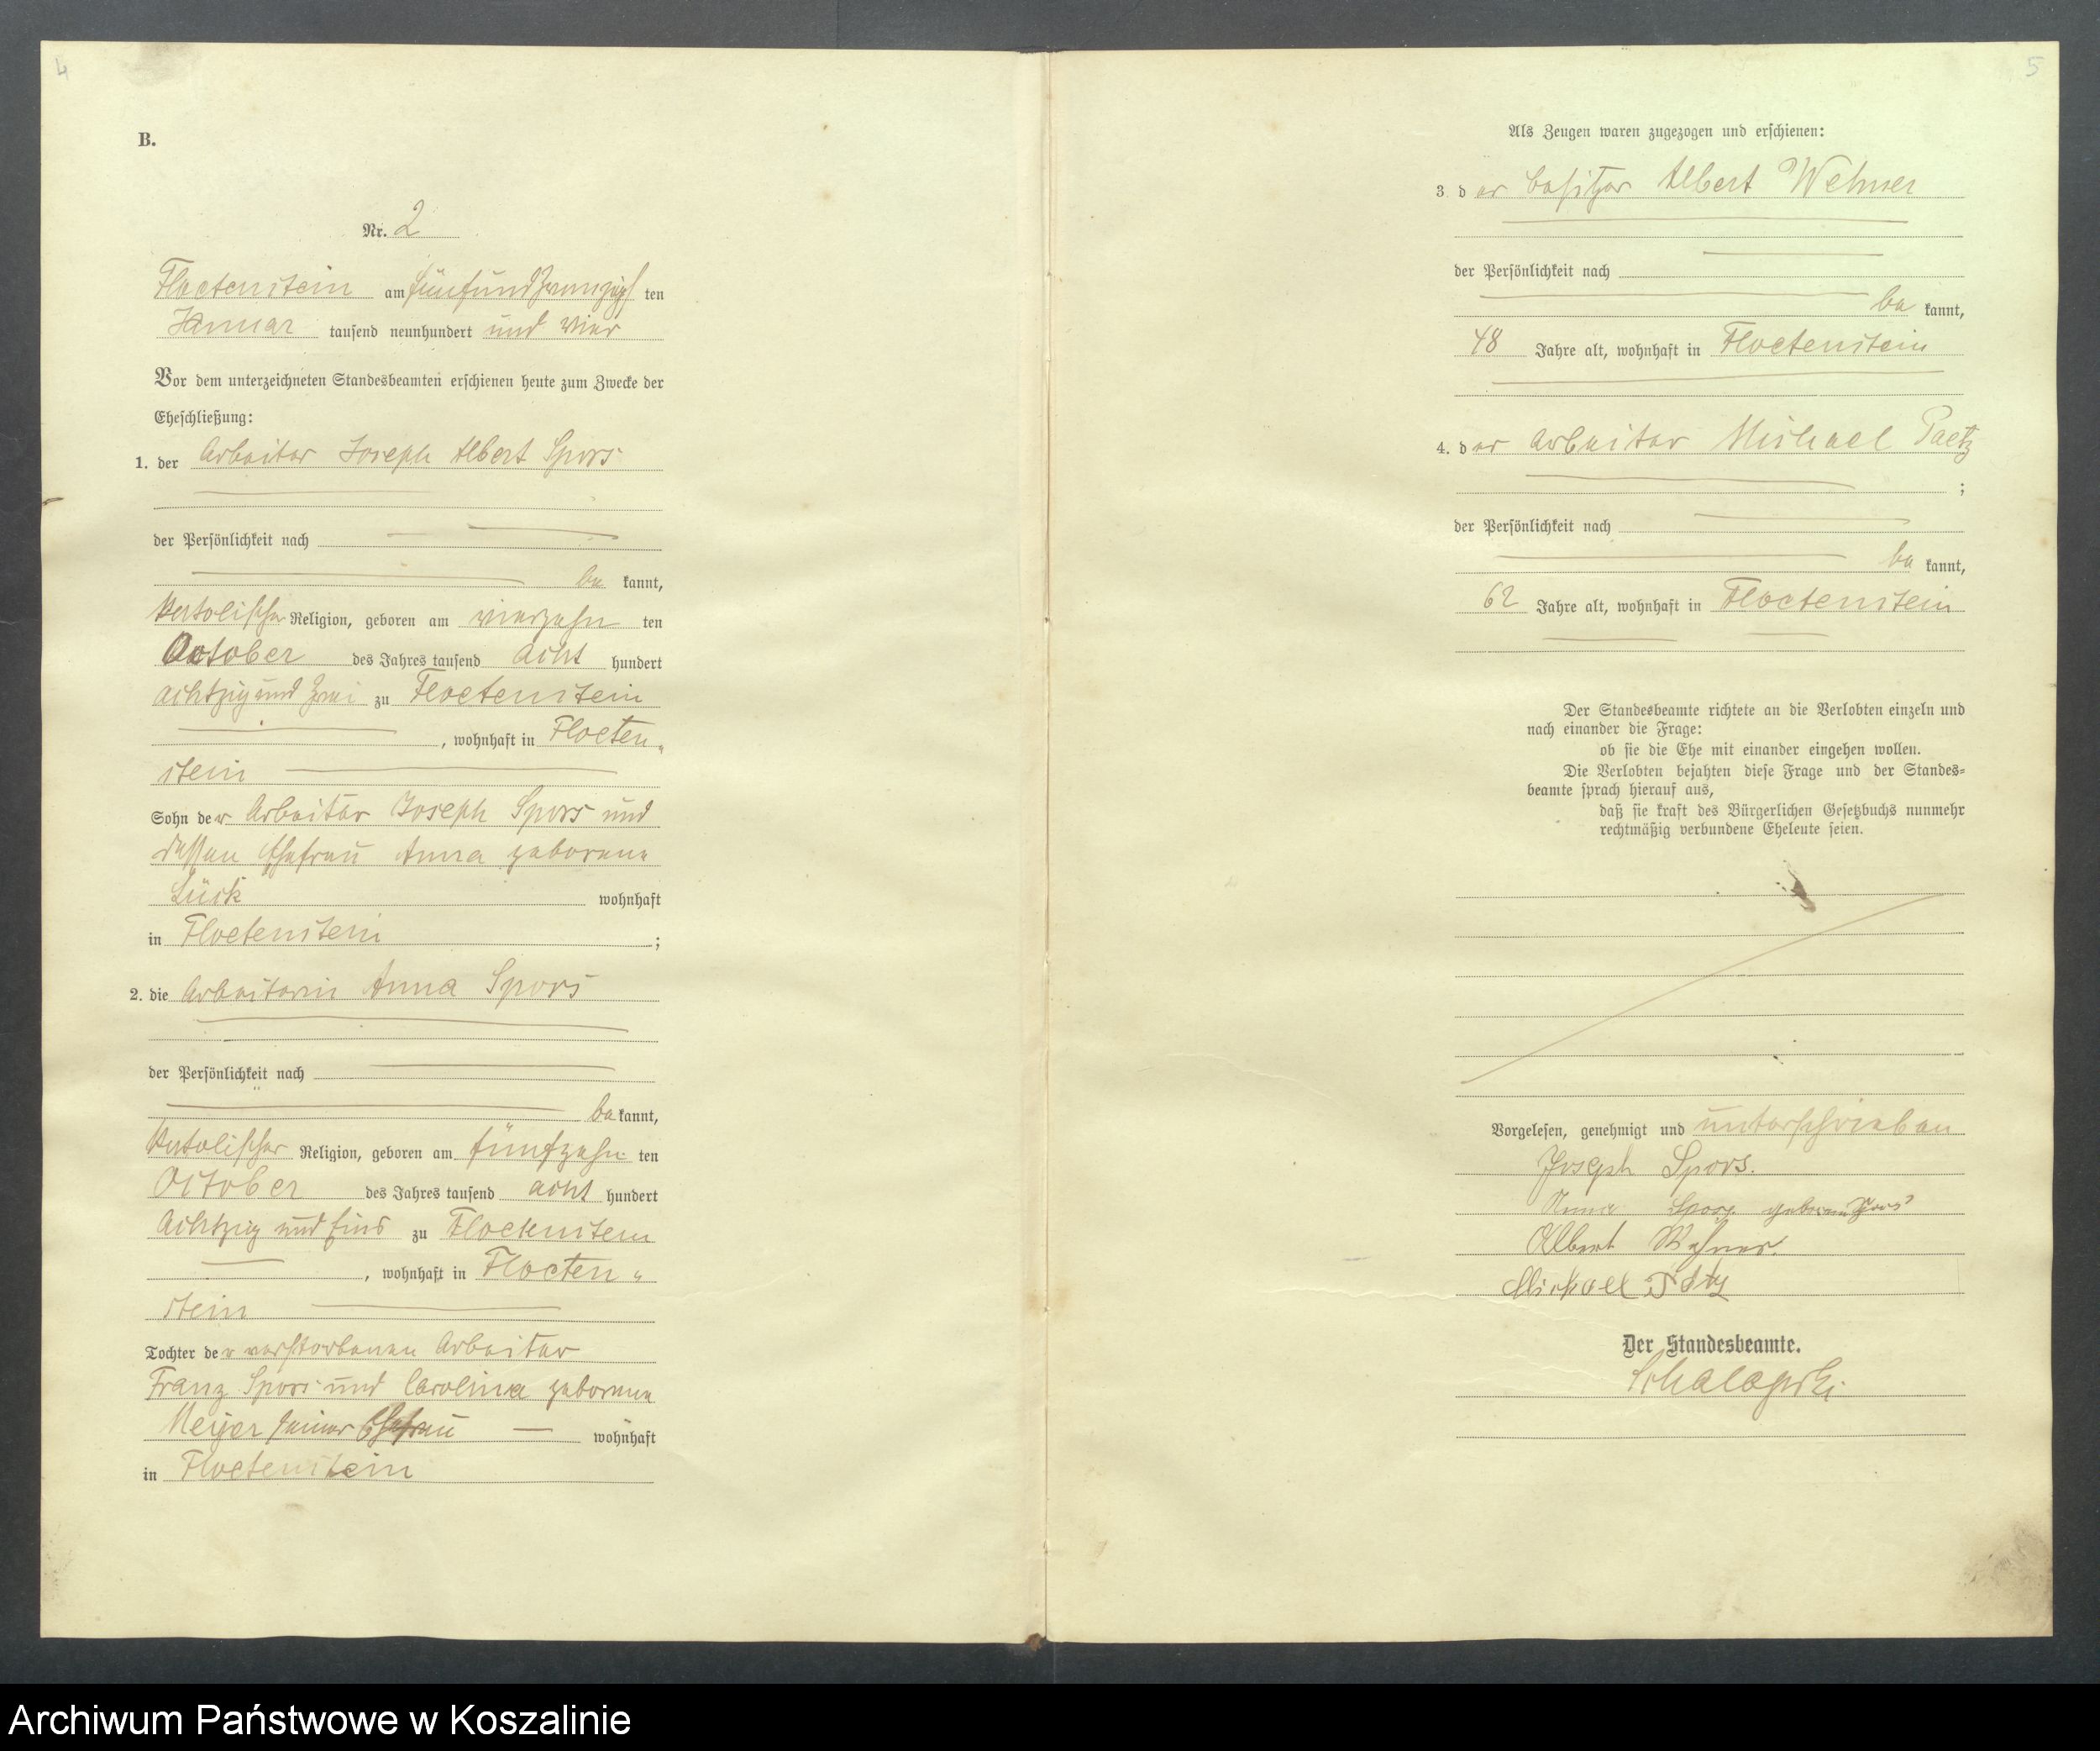 4
B.
Nr. 2
Floetenstein am fünfundzwanzigsten
Januar tausend neunhundert und vier
Vor dem unterzeichneten Standesbeamten erschienen heute zum Zwecke der
Eheschließung:
1. der Arbeiter Joseph Albert Spors
der Persönlichkeit nach
be kannt,
katolischer Religion, geboren am vierzehn ten
October des Jahres tausend acht hundert
achtzig und zwei zu Floetenstein
, wohnhaft in Floeten„
stein
Sohn der Arbeiter Joseph Spors und
dessen Ehefrau Anna geborene
Lück wohnhaft
in Floetenstein ;
2. die Arbeiterin Anna Spors
der Persönlichkeit nach
be kannt,
katolischer Religion, geboren am fünfzehn ten
October des Jahres tausend acht hundert
achtzig und eins zu Floetenstein
, wohnhaft in Floeten„
stein
Tochter der verstorbenen Arbeiter
Franz Spors und Carolina geborene
Meyer seiner Ehefrau wohnhaft
in Floetenstein
5
Als Zeugen waren zugezogen und erschienen:
3 der besitzer Albert Wehner
der Persönlichkeit nach
be kannt,
48 Jahre alt, wohnhaft in Floetenstein
4. der Arbeiter Michael Paetz
;
der Persönlichkeit nach
be kannt,
62 Jahre alt, wohnhaft in Floetenstein
Der Standesbeamte richtete an die Verlobten einzeln und
nach einander die Frage:
ob sie die Ehe mit einander eingehen wollen.
Die Verlobten bejahten diese Frage und der Standes=
beamte sprach hierauf aus,
daß sie kraft des Bürgerlichen Gesetzbuchs nunmehr
rechtmäßig verbundene Eheleute seien.
Vorgelesen, genehmigt und unterschrieben
Joseph Spors.
Anna Spors geborene Spors
Albert Wehner.
Michael
Der Standesbeamte.
Archiwum Państwowe w Koszalinie